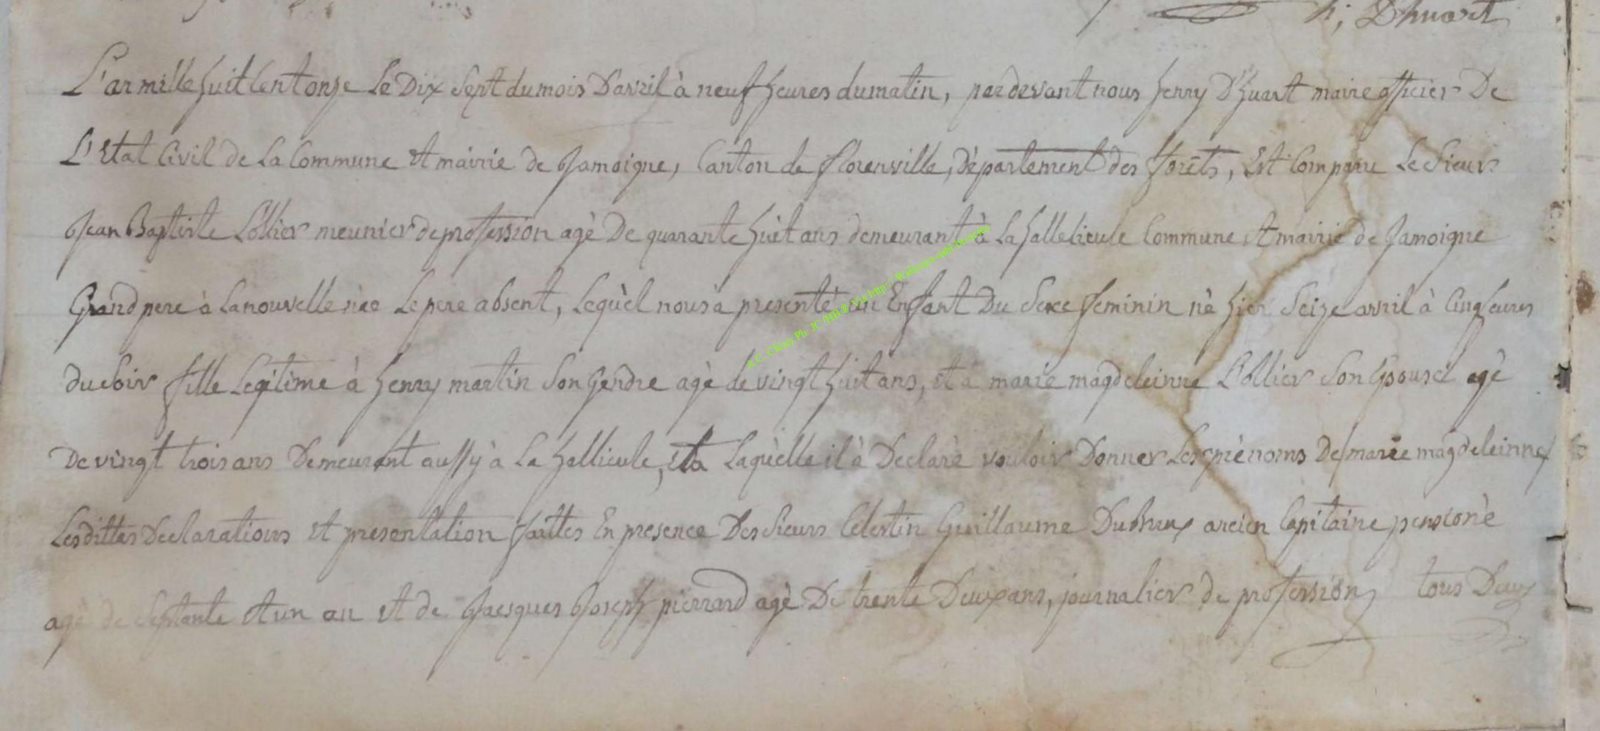 h; Dhuart
L'an mille huit Cent onze Le Dix Sept du mois D'avril à neuf heures du matin, pardevant nous henry D'huart maire officier De
L'Etat Civil de La Commune Et mairie de Jamoigne, Canton de florenville, Département des forêts, Est Comparu Le Sieur
Jean Baptiste Lollier meunier de profession agé De quarante huit ans demeurant à La hallelieule Commune Et mairie de Jamoigne
Grand pere à La nouvelle née Le pere absent, Lequèl nous a presenté un Enfant Du Sexe feminin né hier Seize avril à Cinq heures
du soir fille Legitime à henry martin Son Gendre agé de vingt huit ans, et à marie magdeleinne Lollier Son Epouse agé
De vingt trois ans Demeurant aussy à La hallieule, Et a Laquèlle il à Declaré vouloir Donner Les prénoms De marie magdeleinne
Lesdittes Declarations Et presentation faittes En presence Des sieurs Celestin Guillaume Dubrux ancien Capitaine pensioné
agé de Septante Et un an Et de Jacques Joseph pierrard agé De trente Deux ans, journalier de profession tous Deux